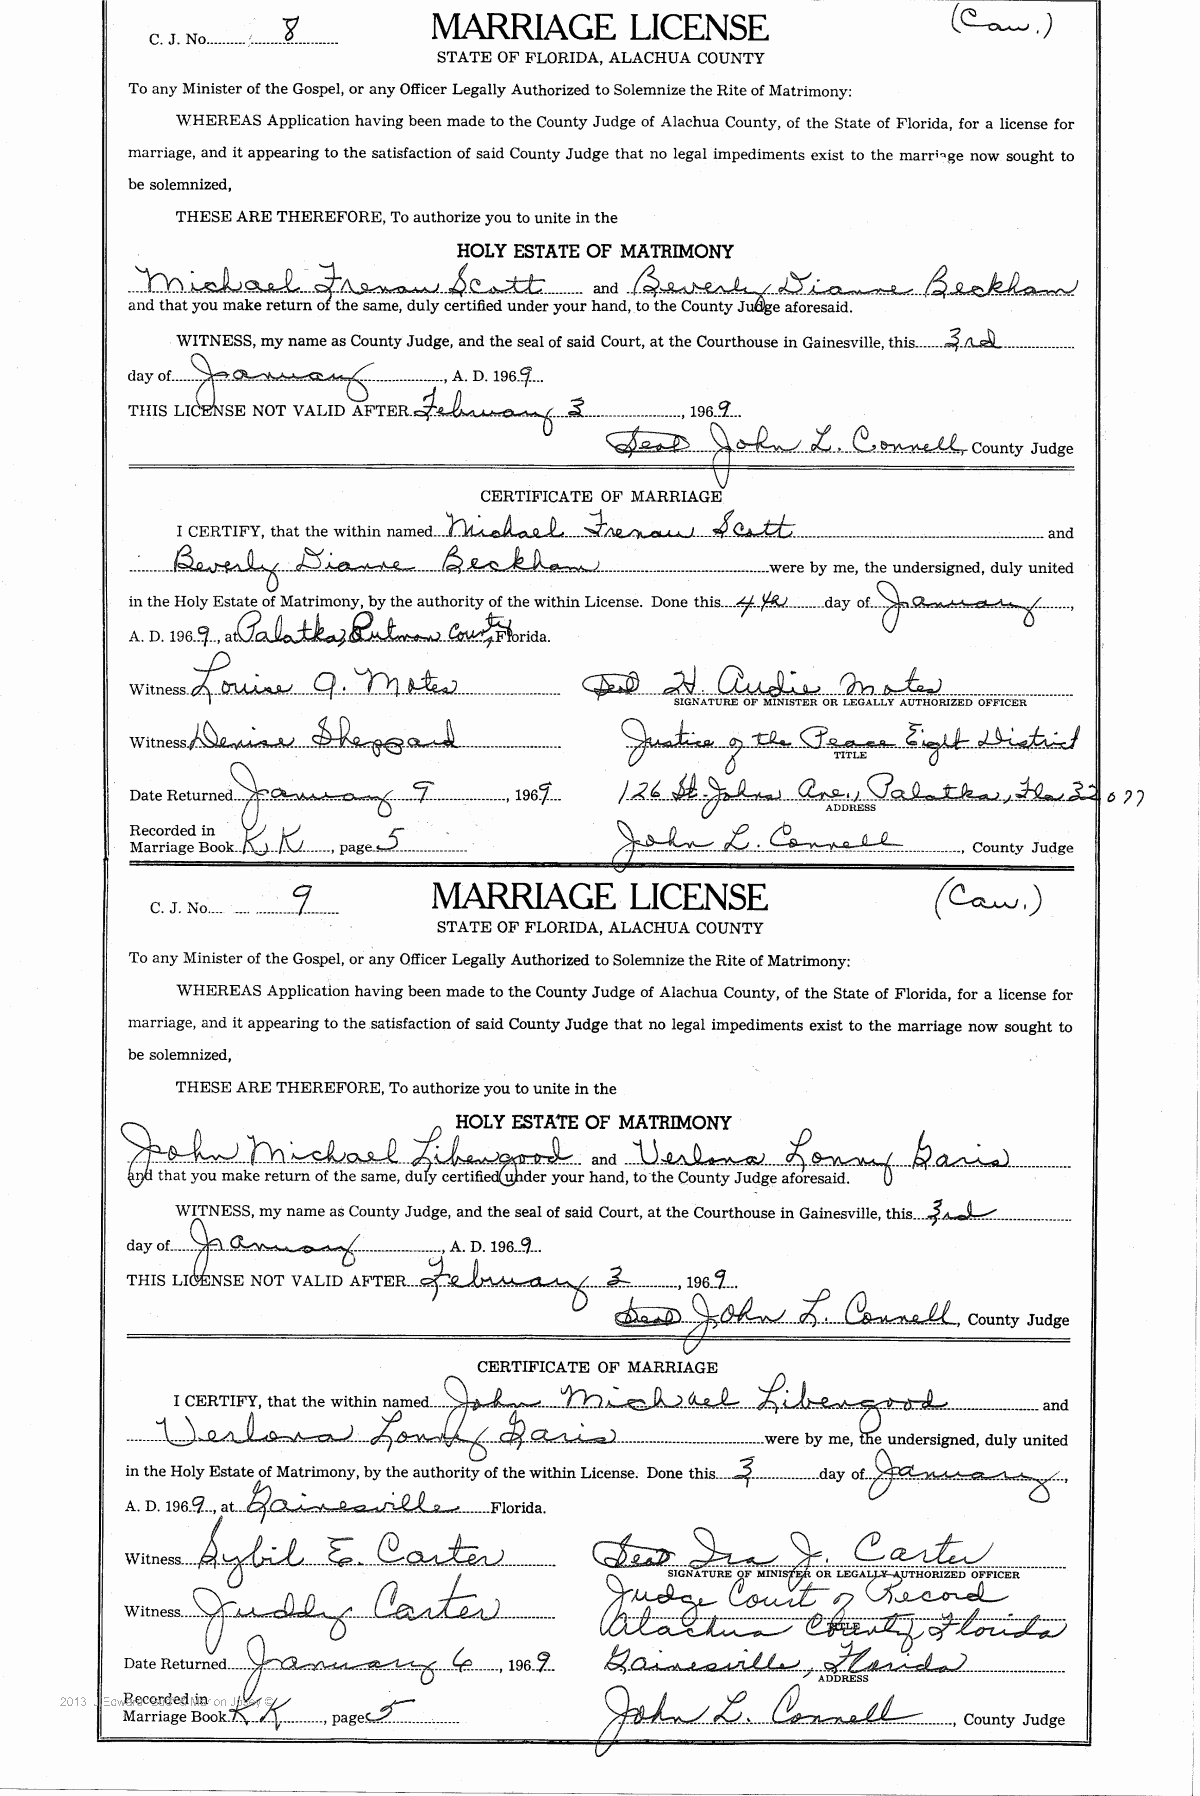 C. J. No. 8 MARRIAGE LICENSE (Caw.)
STATE OF FLORIDA, ALACHUA COUNTY
To any Minister of the Gospel, or any Officer Legally Authorized to Solemnize the Rite of Matrimony:
WHEREAS Application having been made to the County Judge of Alachua County, of the State of Florida, for a license for
marriage, and it appearing to the satisfaction of said County Judge that no legal impediments exist to the marriage now sought to
be solemnized,
THESE ARE THEREFORE, To authorize you to unite in the
HOLY ESTATE OF MATRIMONY
Michael Frenau Scott and Beverly Dianne Beckham
and that you make return of the same, duly certified under your hand, to the County Judge aforesaid.
WITNESS, my name as County Judge, and the seal of said Court, at the Courthouse in Gainesville, this 3rd
day of January, A. D. 1969
THIS LICENSE NOT VALID AFTER February 3, 1969
Seal John L. Connell, County Judge
CERTIFICATE OF MARRIAGE
I CERTIFY, that the within named Michael Frenau Scott and
Beverly Dianne Beckham were by me, the undersigned, duly united
in the Holy Estate of Matrimony, by the authority of the within License. Done this 4th day of January,
A. D. 1969, at Palatka, Putman County, Florida.
Witness Louise A. Motes Seal H. Audie Motes
SIGNATURE OF MINISTER OR LEGALLY AUTHORIZED OFFICER
Witness Denise Sheppard Justice of the Peace Eight District
TITLE
Date Returned January 9, 1969 126 St. Johns Ave., Palatka, Fla 32077
ADDRESS
Recorded in
Marriage Book KK, page 5 John L. Connell, County Judge
C. J. No. 9 MARRIAGE LICENSE (Caw.)
STATE OF FLORIDA, ALACHUA COUNTY
To any Minister of the Gospel, or any Officer Legally Authorized to Solemnize the Rite of Matrimony:
WHEREAS Application having been made to the County Judge of Alachua County, of the State of Florida, for a license for
marriage, and it appearing to the satisfaction of said County Judge that no legal impediments exist to the marriage now sought to
be solemnized,
THESE ARE THEREFORE, To authorize you to unite in the
HOLY ESTATE OF MATRIMONY
John Michael Libengood and Verlona Lonny Garis
and that you make return of the same, duly certified under your hand, to the County Judge aforesaid.
WITNESS, my name as County Judge, and the seal of said Court, at the Courthouse in Gainesville, this 3rd
day of January, A. D. 1969
THIS LICENSE NOT VALID AFTER February 3, 1969
Seal John L. Connell, County Judge
CERTIFICATE OF MARRIAGE
I CERTIFY, that the within named John Michael Libengood and
Verlona Lonny Garis were by me, the undersigned, duly united
in the Holy Estate of Matrimony, by the authority of the within License. Done this 3 day of January,
A. D. 1969, at Gainesville Florida.
Witness Sybil E. Carter Seal Ira J. Carter
SIGNATURE OF MINISTER OR LEGALLY AUTHORIZED OFFICER
Judge Court of Record
Witness Juddy Carter Alachua County, Florida
Date Returned January 6, 1969 Gainesville, Florida
ADDRESS
Recorded in
Marriage Book KK, page 5 John L. Connell, County Judge